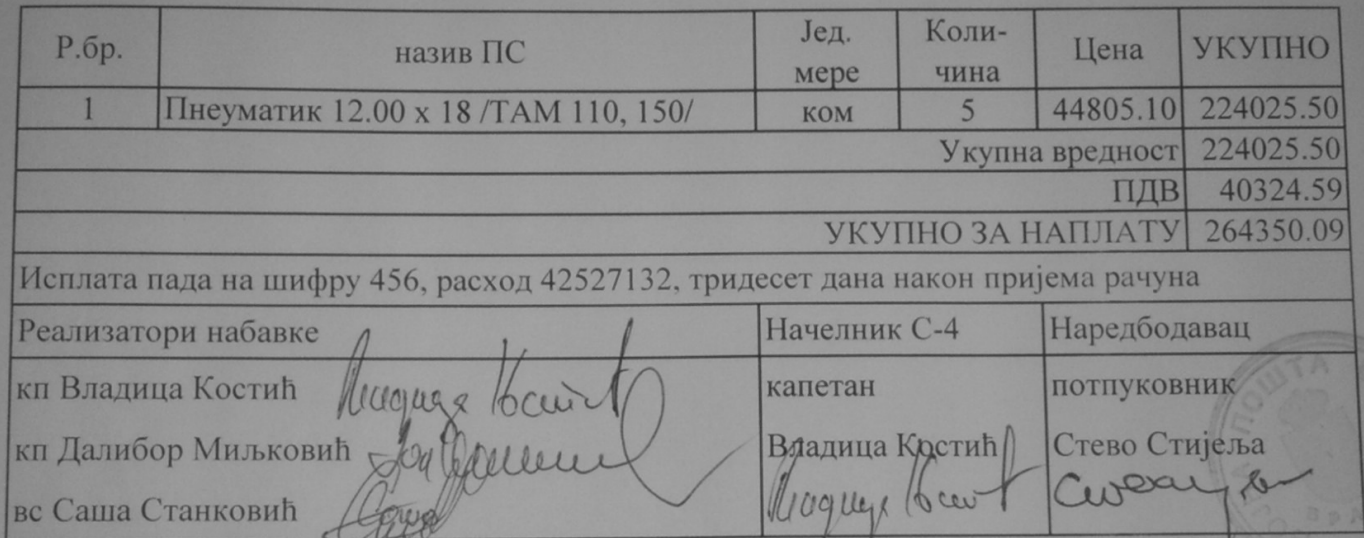 Р.бр. назив ПС Јед. мере Коли-чина Цена УКУПНО
1 Пнеуматик 12.00 x 18 /ТАМ 110, 150/ ком 5 44805.10 224025.50
Укупна вредност 224025.50
ПДВ 40324.59
УКУПНО ЗА НАПЛАТУ 264350.09
Исплата пада на шифру 456, расход 42527132, тридесет дана након пријема рачуна
Реализатори набавке Начелник С-4 Наредбодавац
кп Владица Костић капетан потпуковник
кп Далибор Миљковић Владица Костић Стево Стијеља
вс Саша Станковић